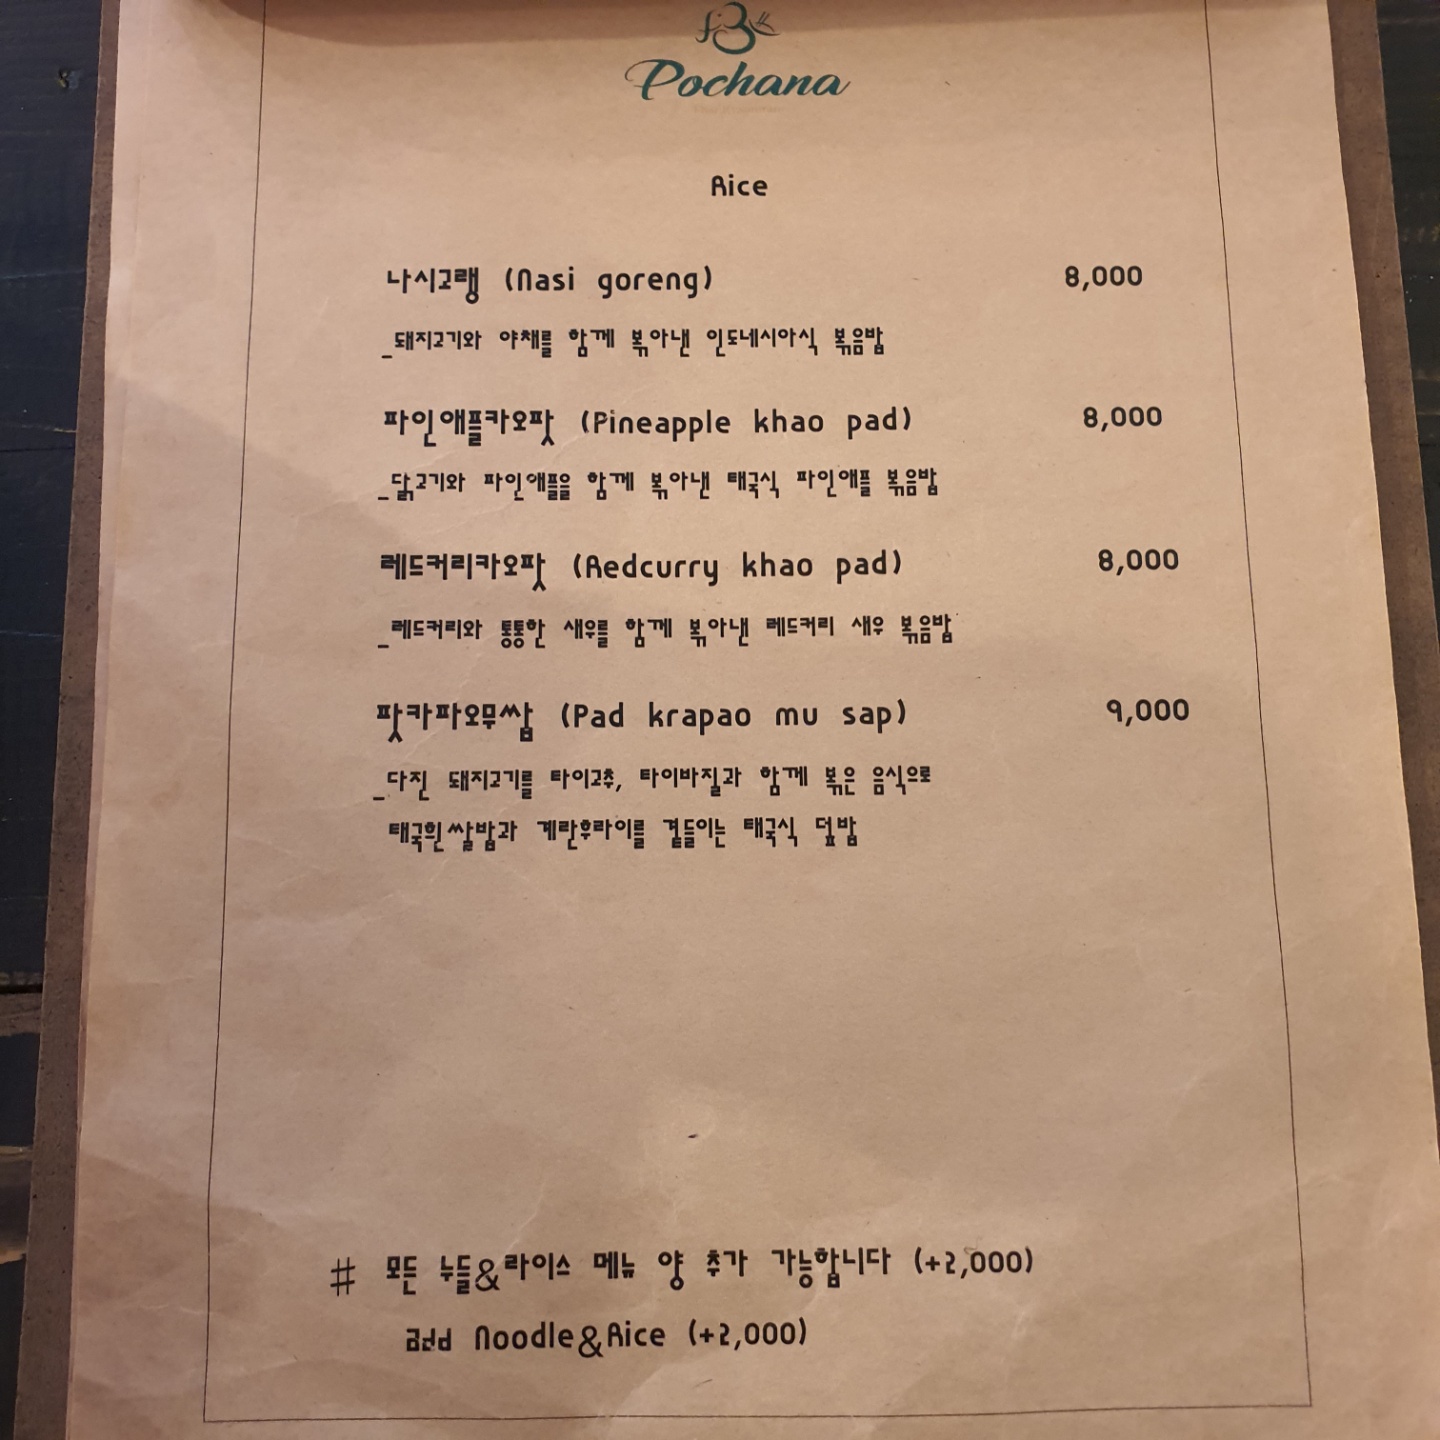 Pochana
Rice
나시고랭 (Nasi goreng) 8,000
_돼지고기와 야채를 함께 볶아낸 인도네시아식 볶음밥
파인애플카오팟 (Pineapple khao pad) 8,000
_닭고기와 파인애플을 함께 볶아낸 태국식 파인애플 볶음밥
레드커리카오팟 (Redcurry khao pad) 8,000
_레드커리와 통통한 새우를 함께 볶아낸 레드커리 새우 볶음밥
팟카파오무쌉 (Pad krapao mu sap) 9,000
_다진 돼지고기를 타이고추, 타이바질과 함께 볶은 음식으로
태국흰쌀밥과 계란후라이를 곁들이는 태국식 덮밥
# 모든 누들&라이스 메뉴 양 추가 가능합니다 (+2,000)
add Noodle&Rice (+2,000)